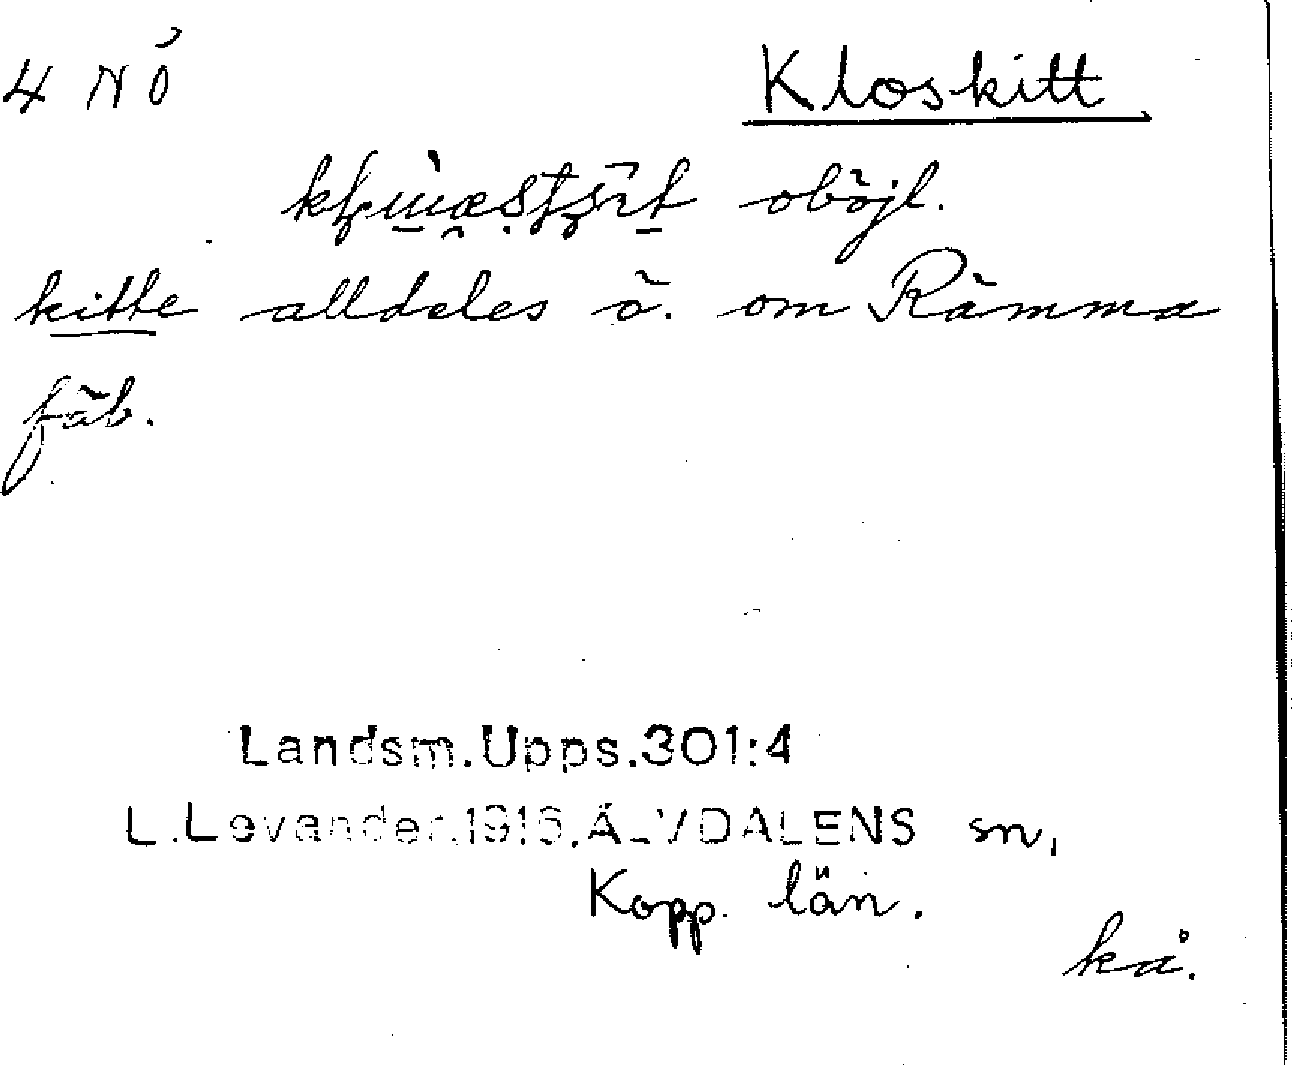 4 NÓ
Kloskitt
oböjl.
kitte alldeles ö. om Rämma
fäb.
Landsm.Upps.301:4
L.Levander.1916.ÄLVDALENS sn,
Kopp. län.
kå.